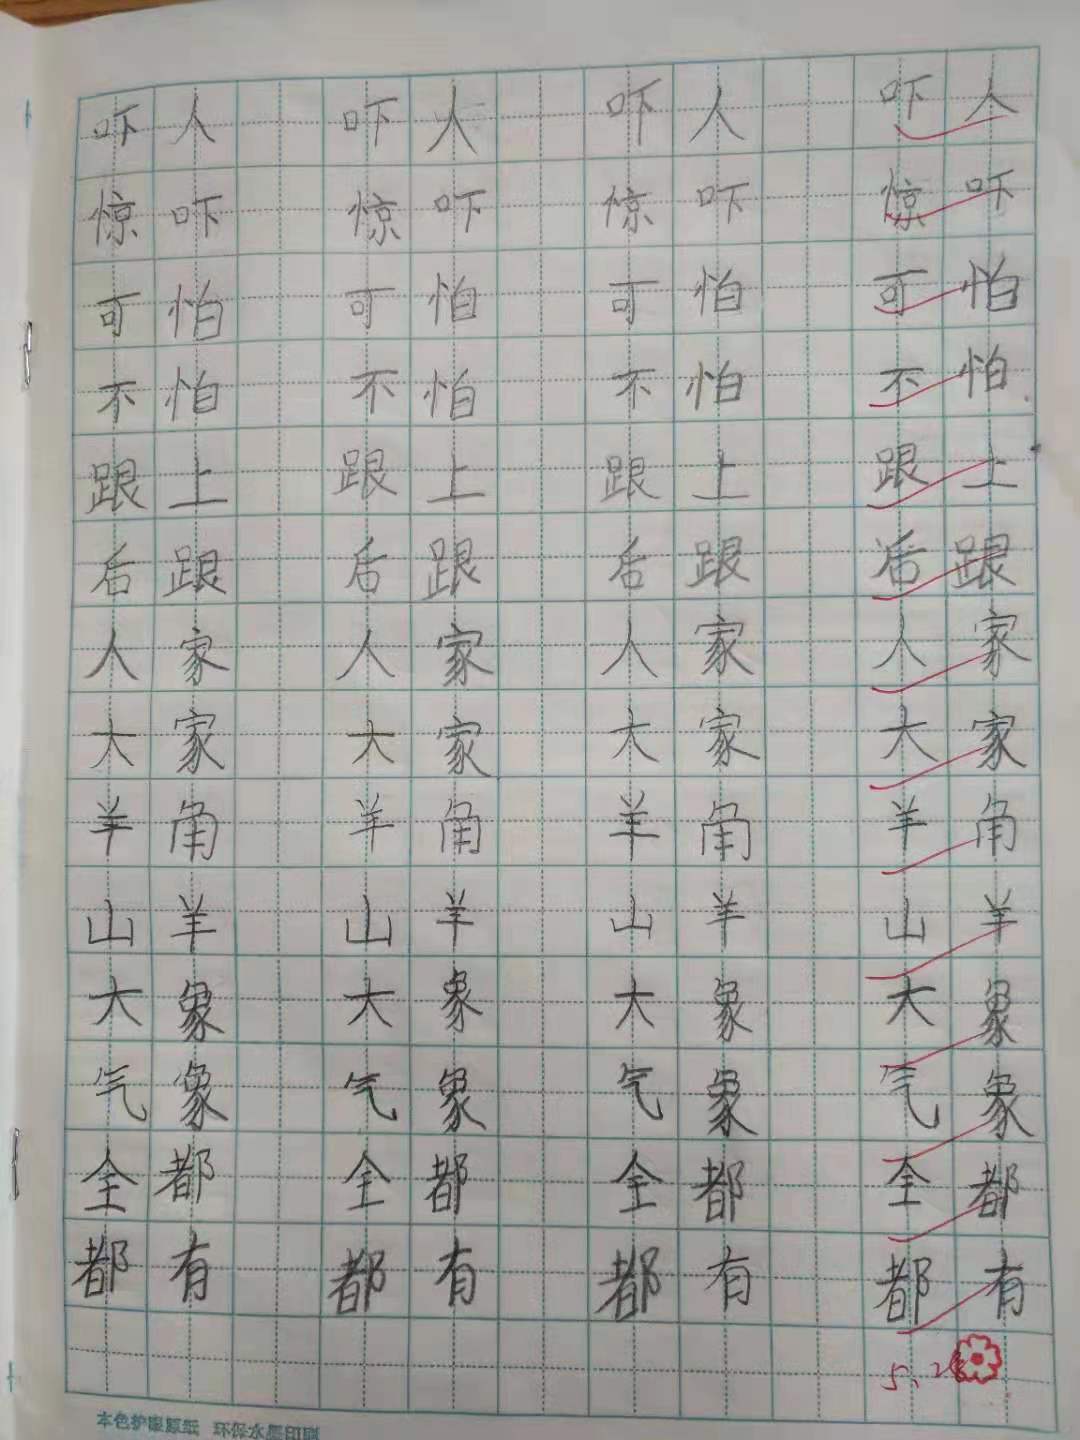 吓人 吓人 吓人 吓人
惊吓 惊吓 惊吓 惊吓
可怕 可怕 可怕 可怕
不怕 不怕 不怕 不怕
跟上 跟上 跟上 跟上
后跟 后跟 后跟 后跟
人家 人家 人家 人家
大家 大家 大家 大家
羊角 羊角 羊角 羊角
山羊 山羊 山羊 山羊
大象 大象 大象 大象
气象 气象 气象 气象
全都 全都 全都 全都
都有 都有 都有 都有
5、28
本色护眼原纸 环保水墨印刷